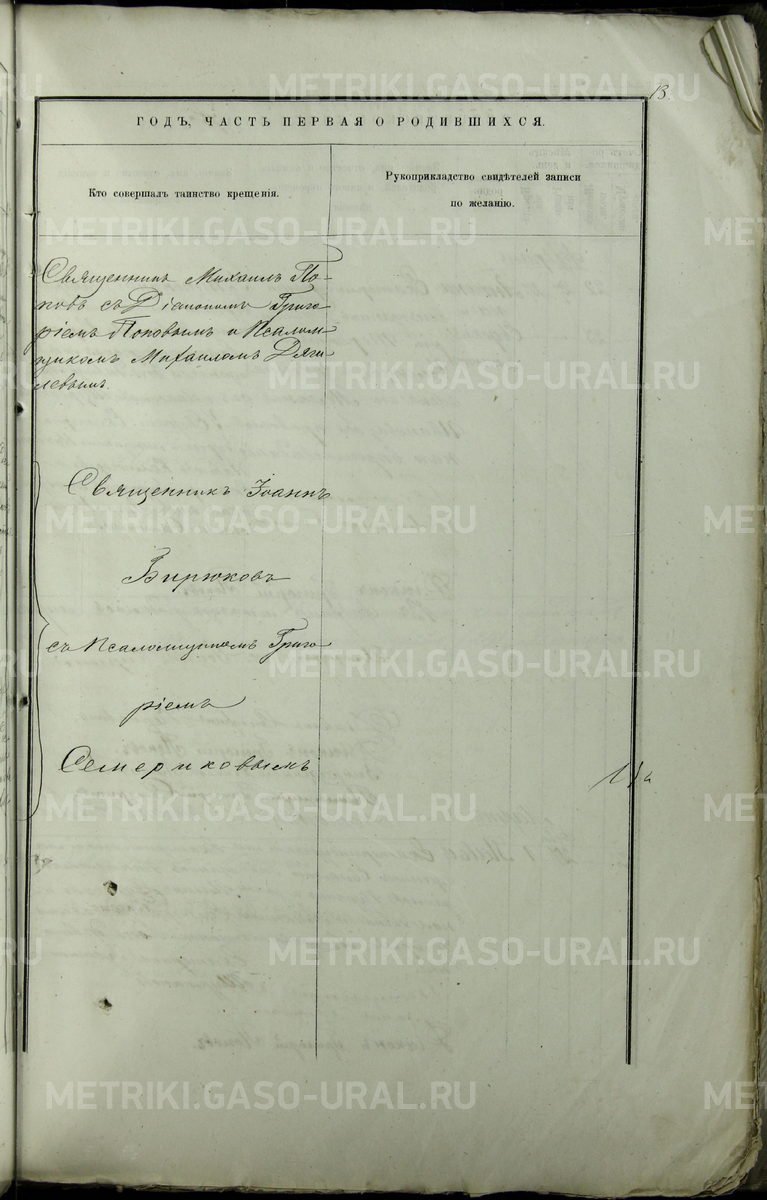 13.
ГОДЪ, ЧАСТЬ ПЕРВАЯ О РОДИВШИХСЯ.
Кто совершалъ таинство крещенія.
Рукоприкладство свидѣтелей записи
по желанію.
Священникъ Михаилъ По-
повъ съ Діакономъ Григо
ріемъ Поповымъ и Псалом
щикомъ Михаиломъ Дяги
левымъ.
Священникъ Іоаннъ
Бирюковъ
съ Псаломщикомъ Григо
ріемъ
Семериковымъ
METRIKI.GASO-URAL.RU